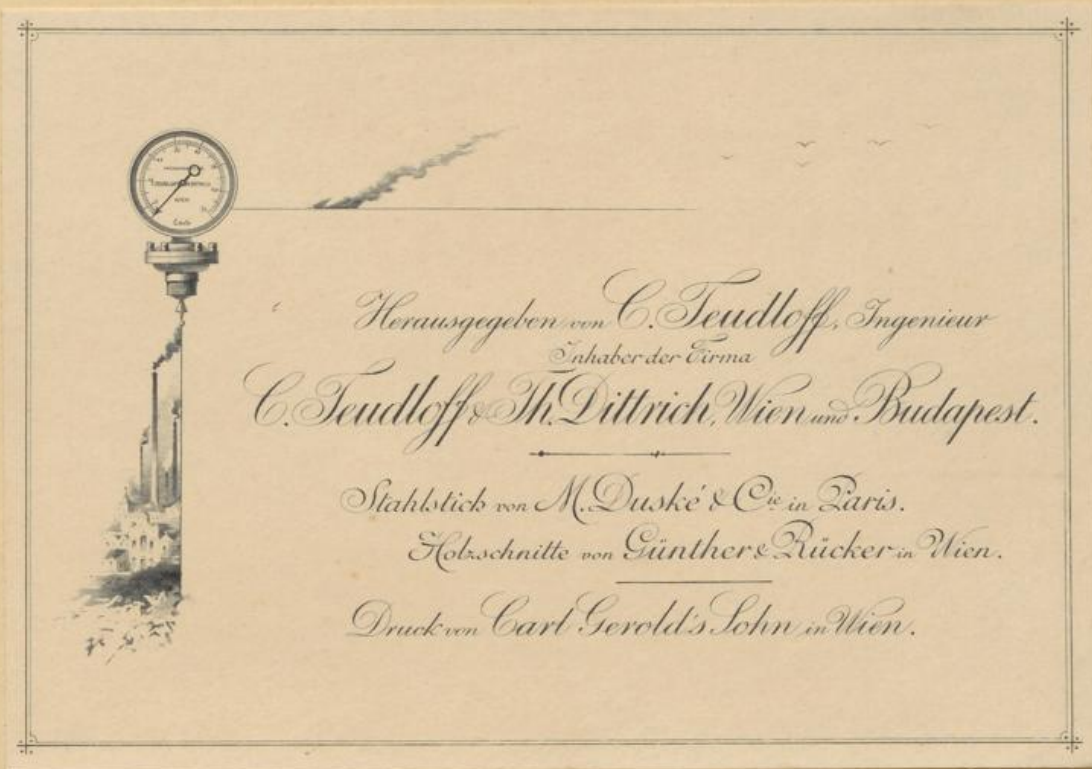 WIEN
Herausgegeben von C. Teudloff, Ingenieur
Inhaber der Firma
C. Teudloff & Th. Dittrich, Wien und Budapest.
Stahlstich von M. Duské & Cie in Paris.
Holzschnitte von Günther & Rücker in Wien.
Druck von Carl Gerold's Sohn in Wien.